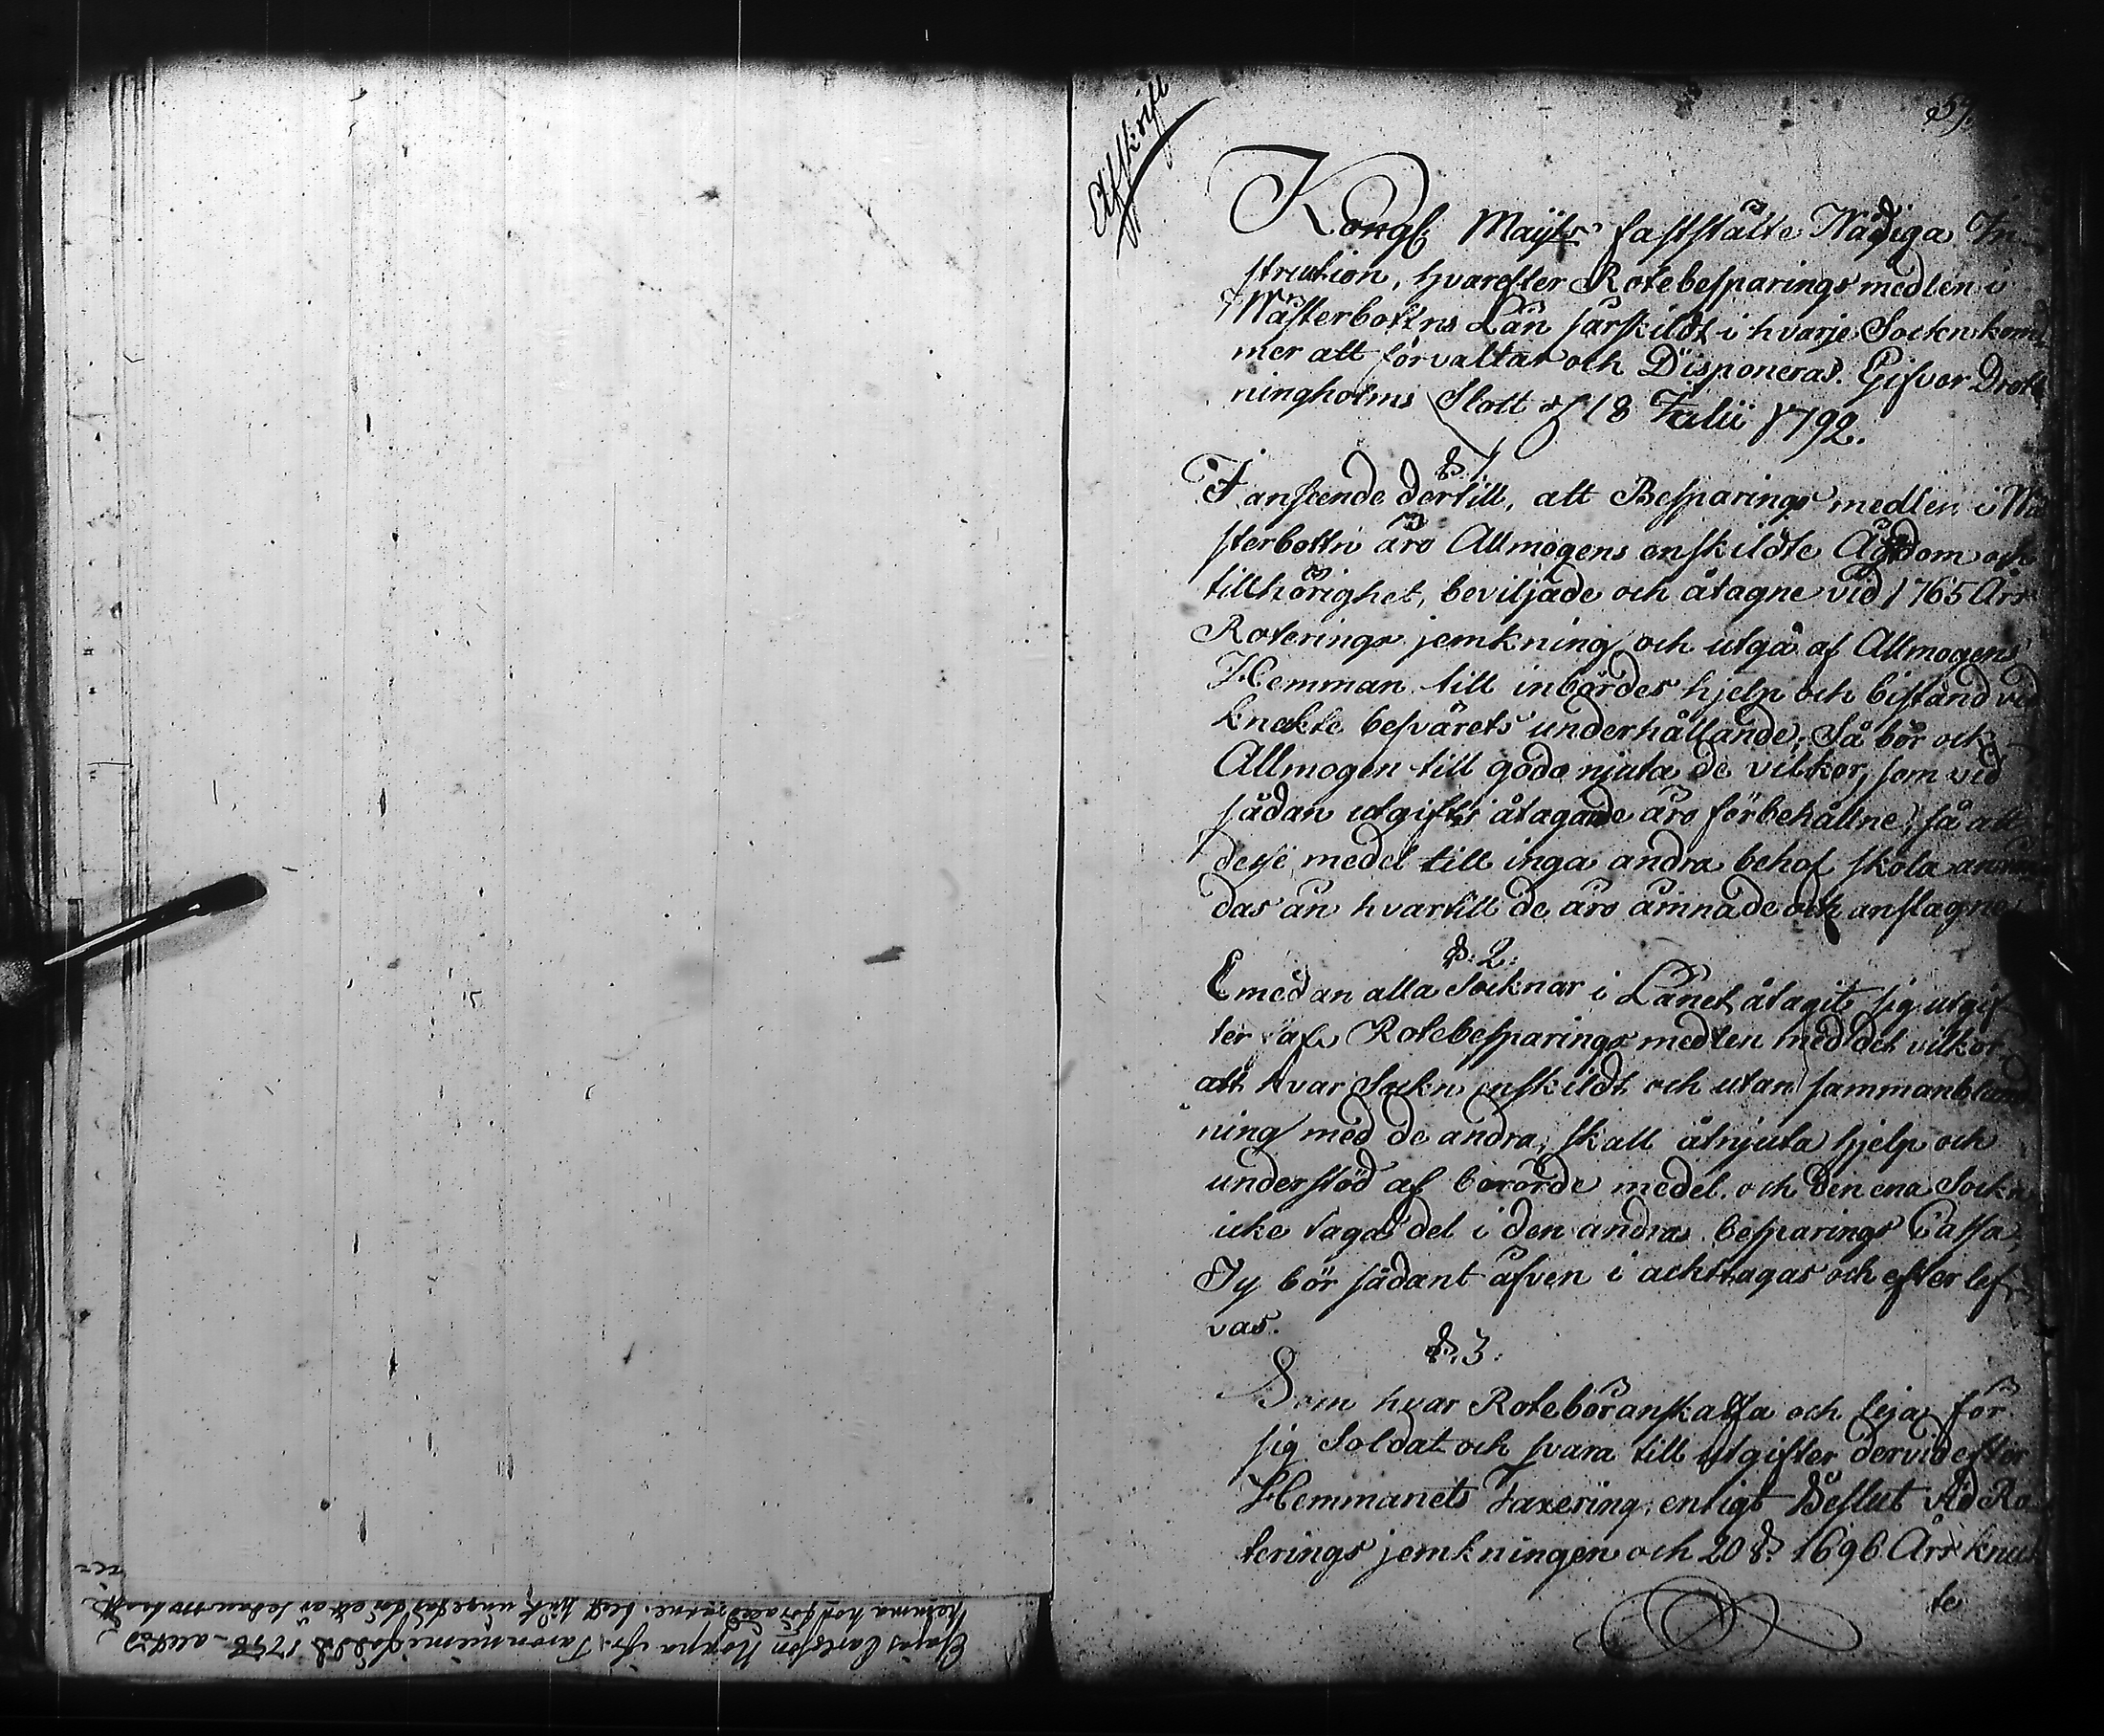 Afskrift
59.
Kongl Maijts faststälte Nådiga In-
struction, hvarefter Rotebesparings medlen i
Wästerbottns Län särskildt i hvarje Sockn kom-
mer att förvaltas och Disponeras. Gifver Drott-
ningholms Slott d 18 Julii 1792.
§. 1.
I anseende dertill, att Besparings medlen i Wä-
sterbottn äro Allmogens enskildte Ägdom och
tillhörighet, beviljade och åtagne vid 1765 Års
Roterings jemkning och utgå af Allmogens
Hemman till inbördes hjelp och bistånd vid
knekte besvärets underhållande, Så bör och
Allmogen till godo njuta de vilkor, som vid
sådan utgifts åtagande äro förbehållne, så att
desse medel till inga andra behof skola använ-
das än hvartill de äro ämnade och anslagne
§. 2.
Emedan alla Socknar i Länet åtagit sig utgif-
ter af Rotebesparings medlen med det vilkor
att hvar Sockn enskildt och utan sammanbland-
ning med de andra, skall åtnjuta hjelp och
understöd af berörde medel och den ena Sockn
icke taga del i den andras besparings Cassa,
Ty bör sådant äfven i akttagas och efterlef-
vas.
§. 3.
Som hvar Rote bör anskaffa och leja för
sig Soldat och svara till utgifter dervid efter
Hemmanets Taxering, enligt Beslut vid Ro-
terings jemkningen och 20 §. 1696 Års knek-
te
Esajas Carlsson Noppa ifr.
hemma hos föräldrarne